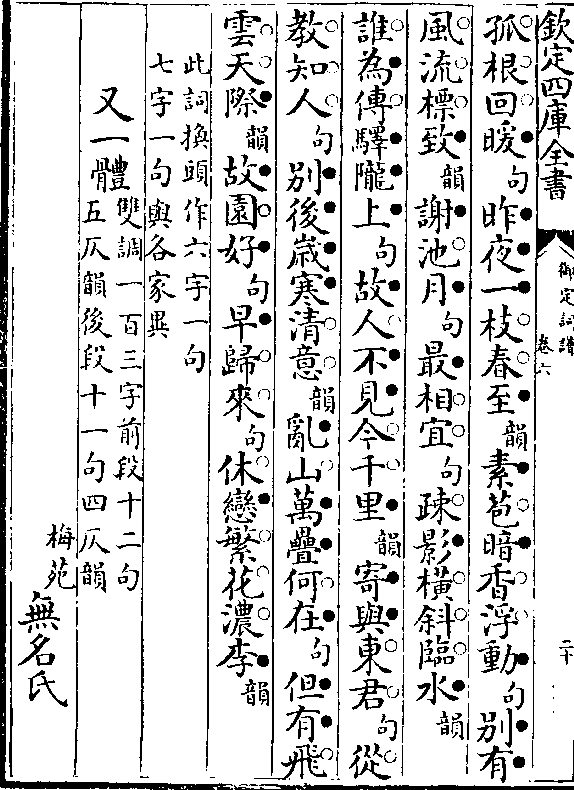 欽定四庫全書
御定詞譜
卷六
二十
孤根回暖句昨夜一枝春至韻素苞暗香浮動句別有
風流標致韻謝池月句最相宜句疎影橫斜臨水韻
誰為傳驛隴上句故人不見今千里韻寄與東君句從
教知人句別後歲寒清意韻亂山萬疊何在句但有飛
雲天際韻故園好句早歸來句休戀繁花濃李韻
此詞換頭作六字一句
七字一句與各家異
又一體雙調一百三字前段十二句
五仄韻後段十一句四仄韻
梅苑
無名氏